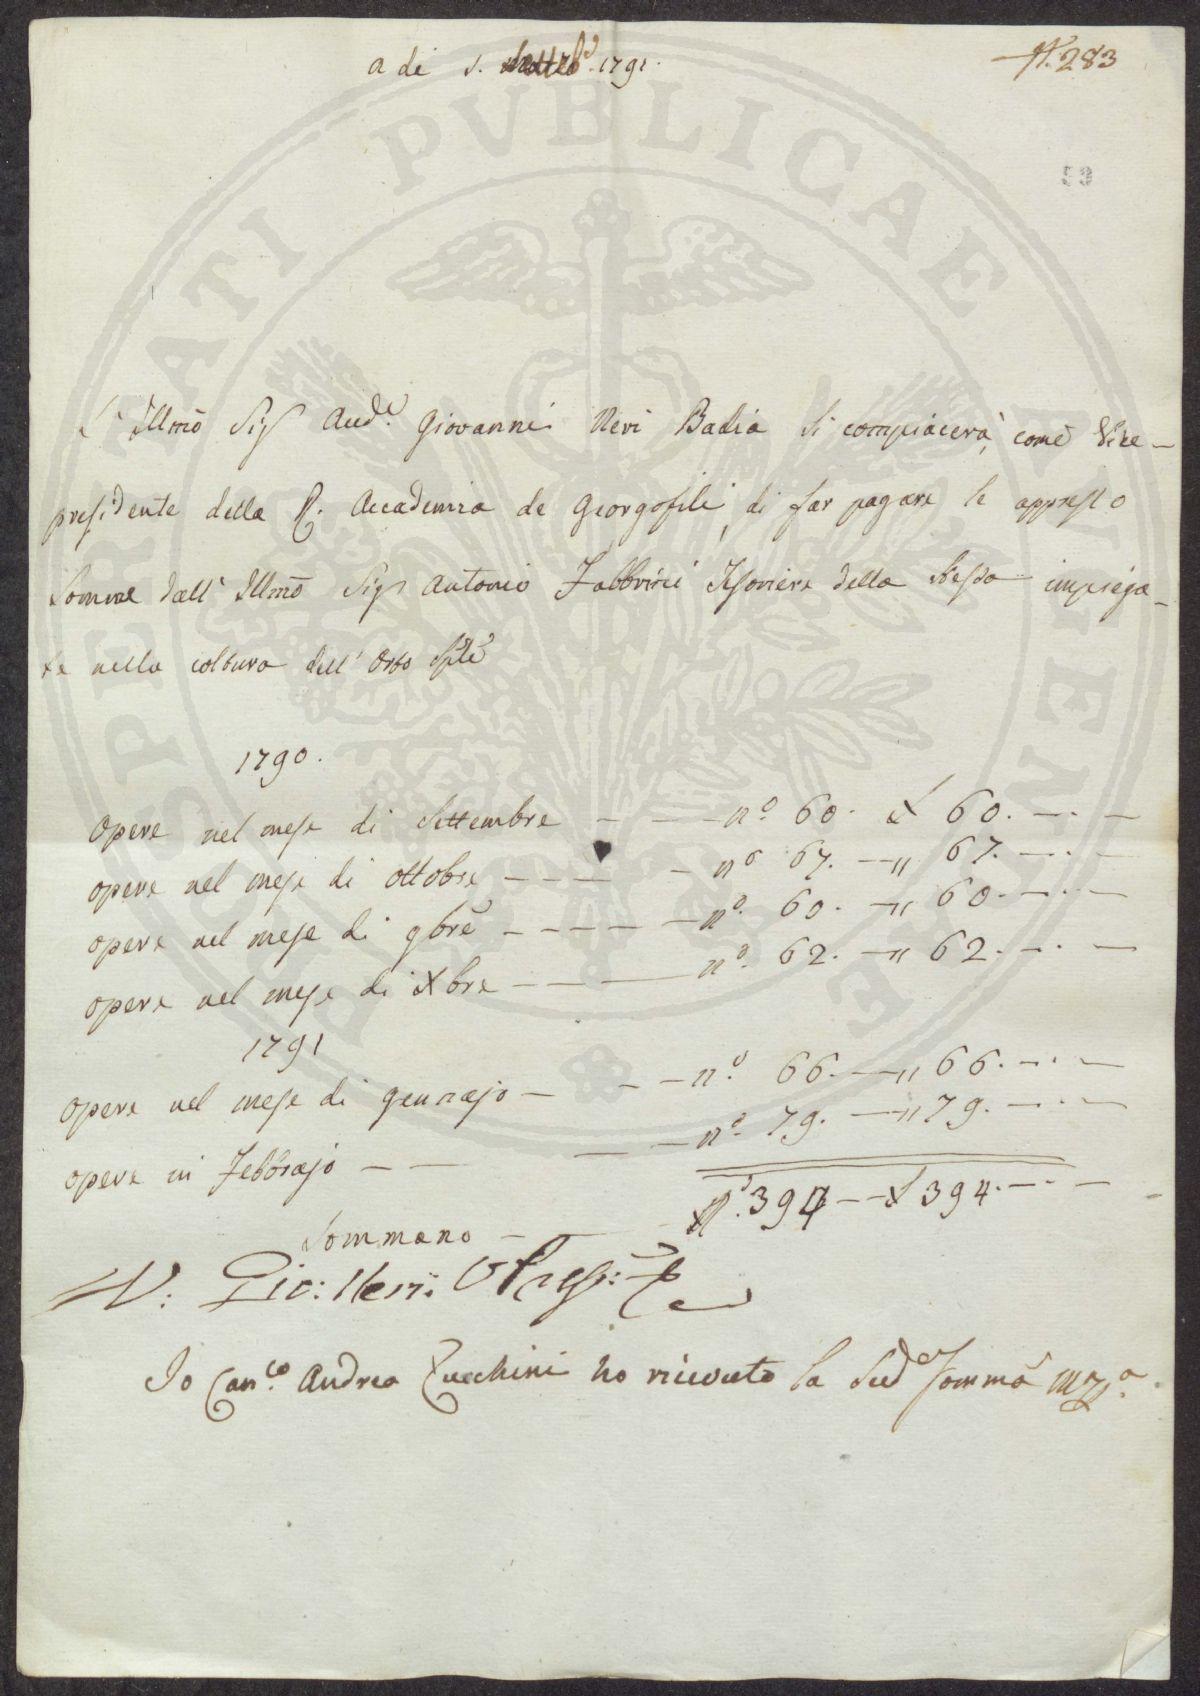 a di 5. Settebr̃e. 1791.
N. 283
53
L'Illmõ Sig Aud.e Giovanni Neri Badia si compiacerà, come Vice-
presidente della R. Accademia de Georgofili, di far pagare le appresso
somme dall' Illmõ Sigr Antonio Fabbrini Tesoriere della stessa impiega-
te nella coltura dell' Orto Spl̃e
1790.
Opere nel mese di Settembre — — — n.o 60. £ 60. —.. —
opere nel mese di ottobre — — — — — n.o 67. — " 67. —.. —
opere nel mese di 9brẽ — — — — — n.o 60. — " 60. —.. —
opere nel mese di Xbre — — — — n.o 62. — " 62. —.. —
1791
opere nel mese di Gennajo — — — n.o 66. — " 66. —.. —
opere in Febbrajo — — — — n.o 79. — " 79. —.. —
Sommano — N.o 394 — £ 394. —.. —
V: Gio: Neri VPresi:te
Io Can.co Andrea Zucchini ho ricevuto la Sud.a Somma mp.a
PROSPERITATI PUBLICAE AUGENDAE